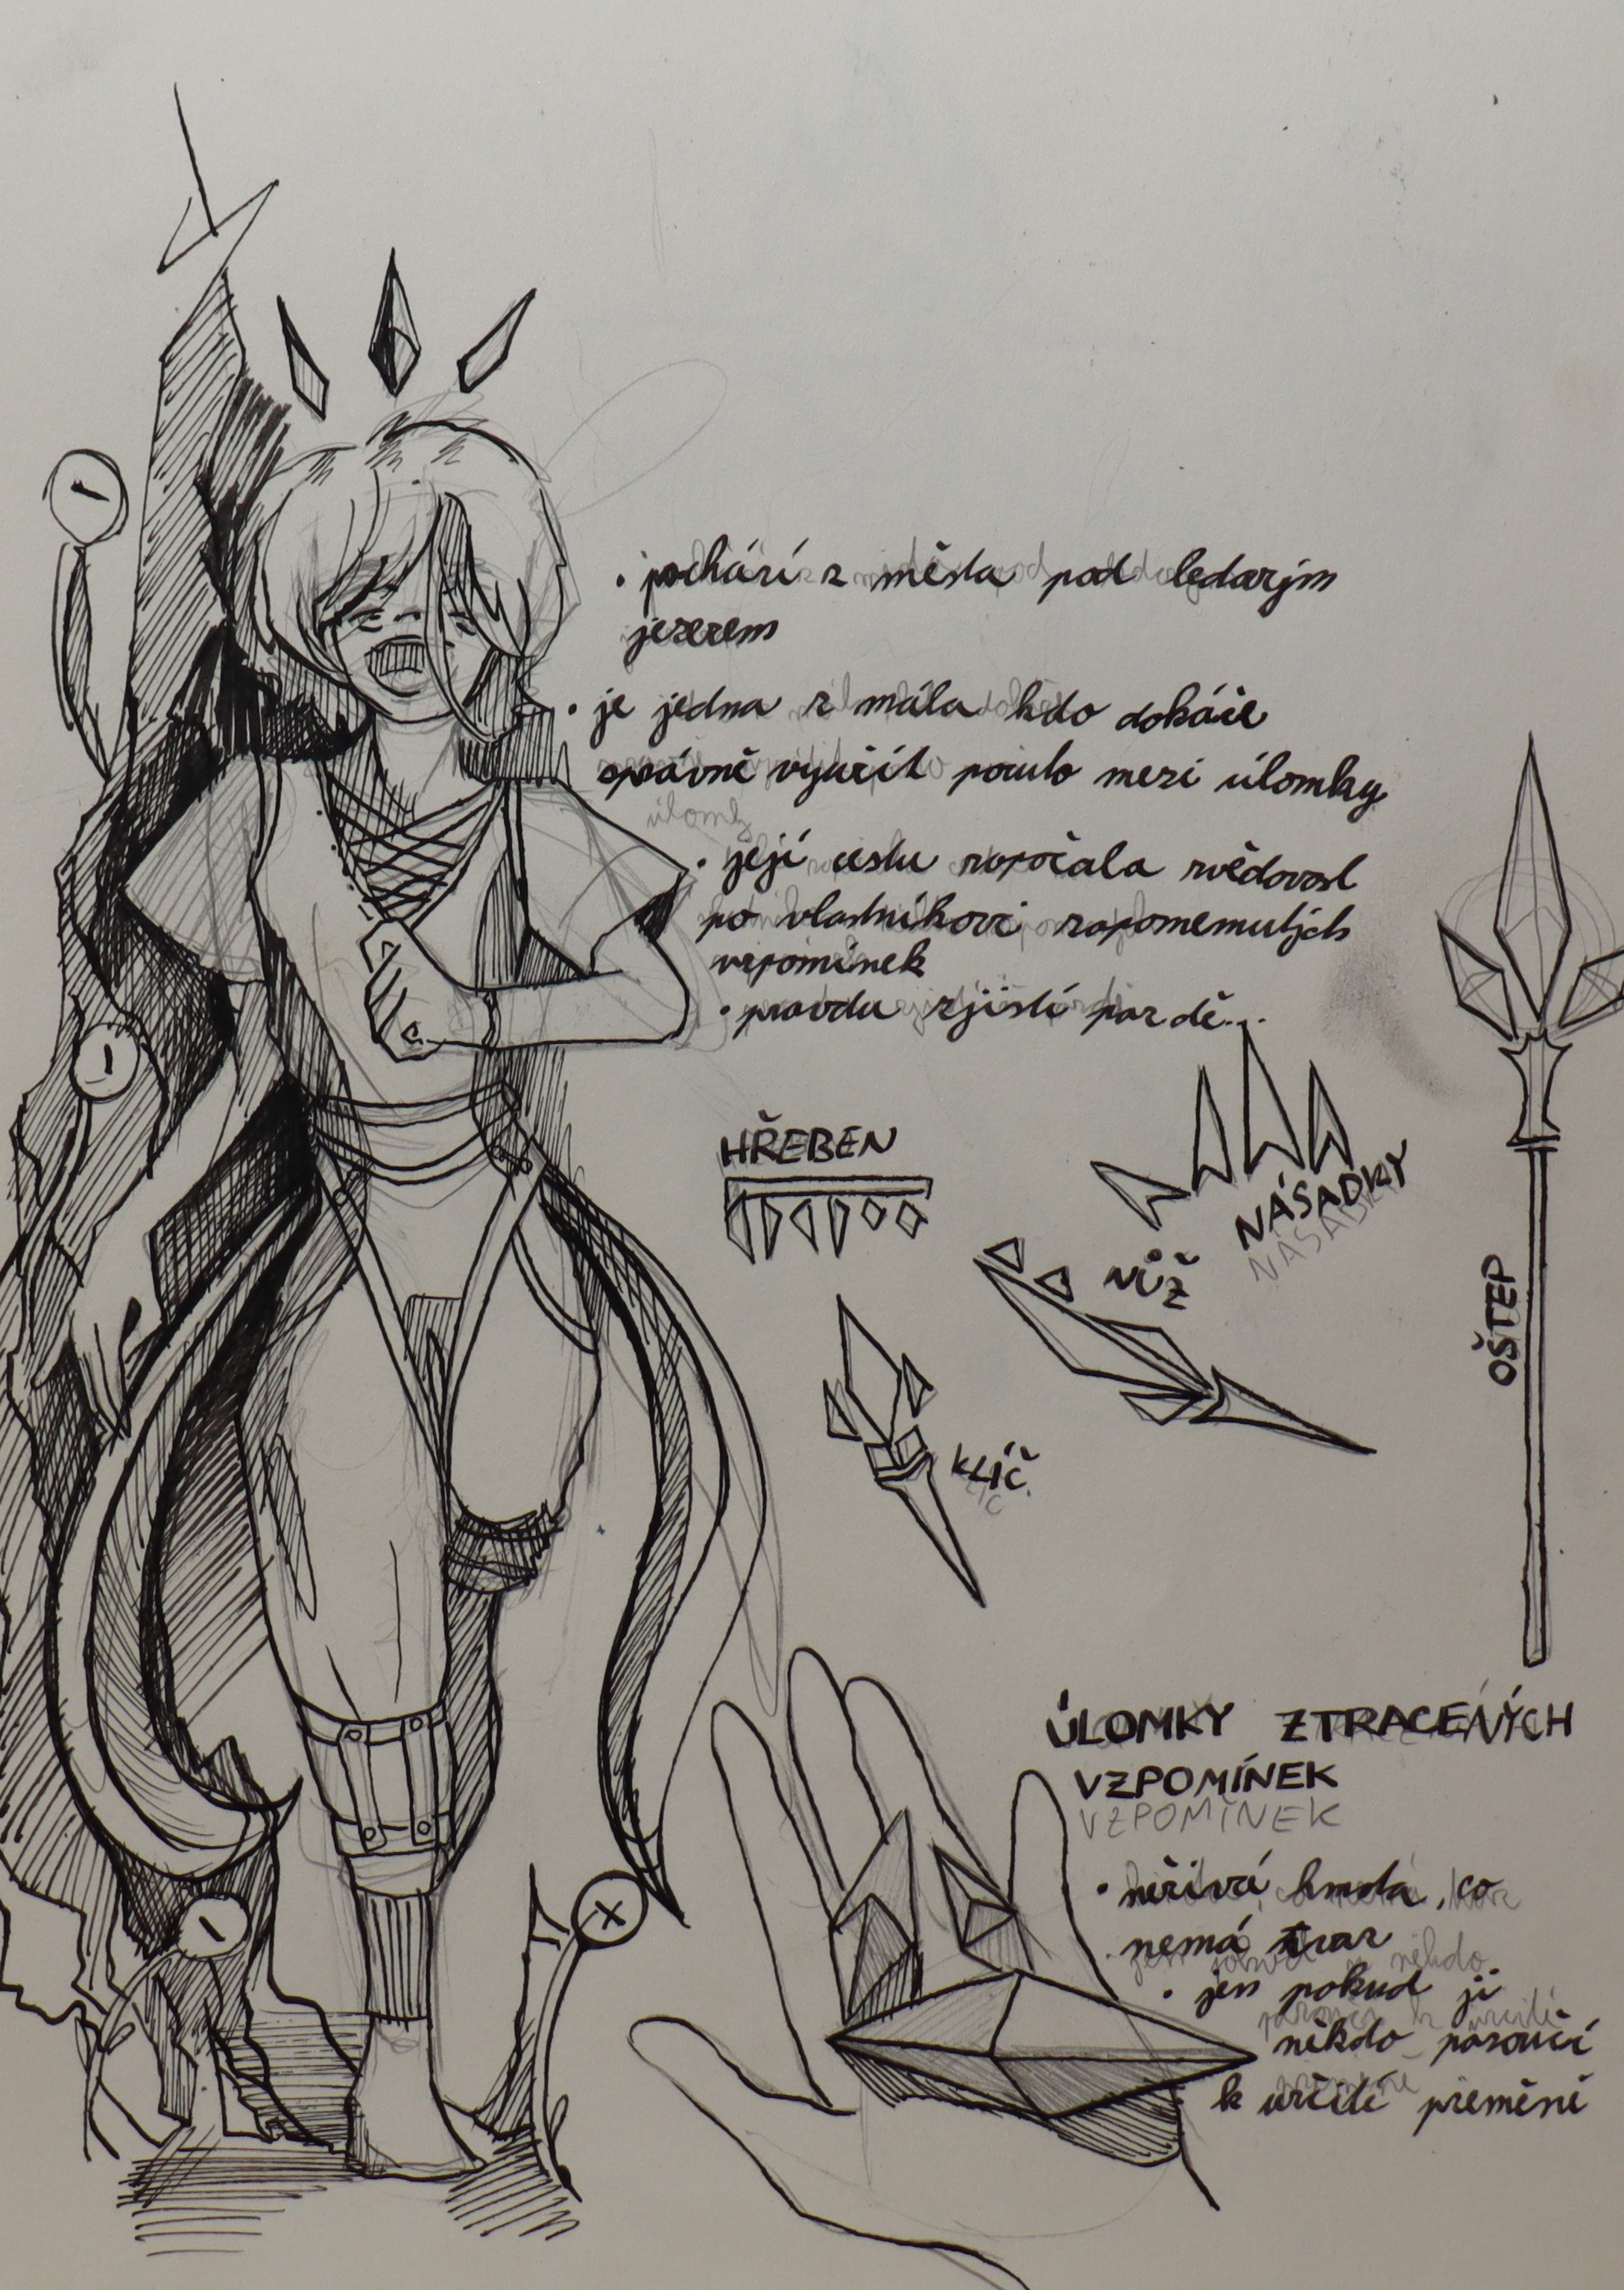 • pochází z města pod ledovým
jezerem
• je jedna z mála kdo dokáže
správně využít pouto mezi úlomky
• její cestu započala zvědavost
po vlastníkovi zapomenutých
vzpomínek
• pravdu zjistí pozdě...
HŘEBEN
NÁSADKY
NŮŽ
OŠTĚP
KLÍČ
ÚLOMKY ZTRACENÝCH
VZPOMÍNEK
VZPOMÍNEK
• neživá hmota, co
nemá tvar
• jen pokud ji
někdo poručí
k určité přeměně